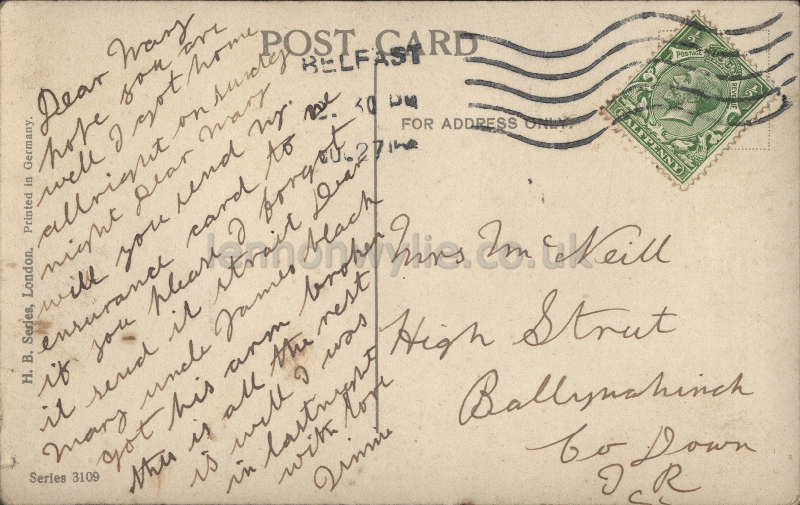 POST CARD
BELFAST
30 PM
27
FOR ADDRESS ONLY.
HALFPENNY
H. B. Series, London. Printed in Germany.
Series 3109
Dear Mary
hope you are
well I got home
allright on sunday
night Dear Mary
will you send my
ensurance card to me
if you please I forgot
it send it strait Dear
Mary uncle James black
got his arm broken
this is all the rest
is well I was
in lastnight
with love
Mrs McNeill
High Street
Ballynahinch
Co Down
lennonwylie.co.uk